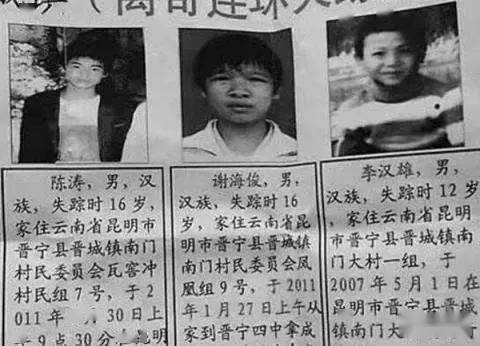 (离奇连环失踪
陈涛，男，汉
族，失踪时 16 岁，
家住云南省昆明市
晋宁县晋城镇南门
村民委员会瓦窑冲
村民组 7 号，于 2
011 年 月 30日上
9 点 30 分 昆明
谢海俊，男，
汉族，失踪时 16
岁，家住云南省昆
明市晋宁县晋城镇
南门村民委员会凤
凰组 9 号，于 2011
年 1 月 27 日上午从
家到晋宁四中拿成
李汉雄，男，
汉族，失踪时 12 岁，
家住云南省昆明
市晋宁县晋城镇南
门大村一组，于
2007 年 5 月 1 日在
昆明市晋宁县晋城
镇南门大